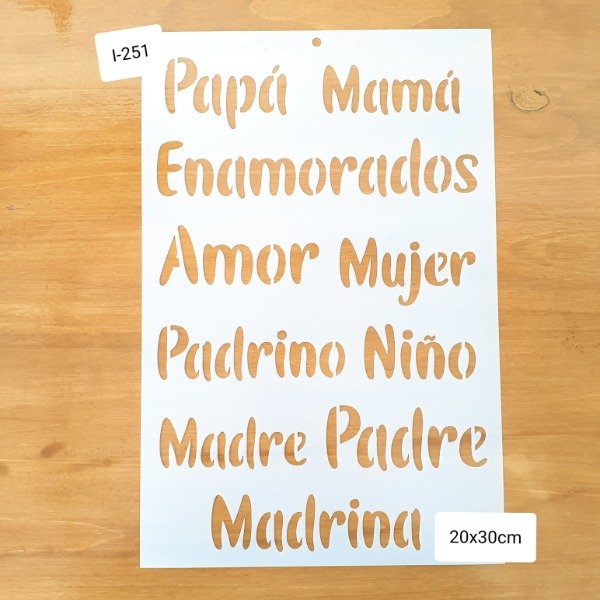 I-251
Papá Mamá
Enamorados
Amor Mujer
Padrino Niño
Madre Padre
Madrina
20x30cm